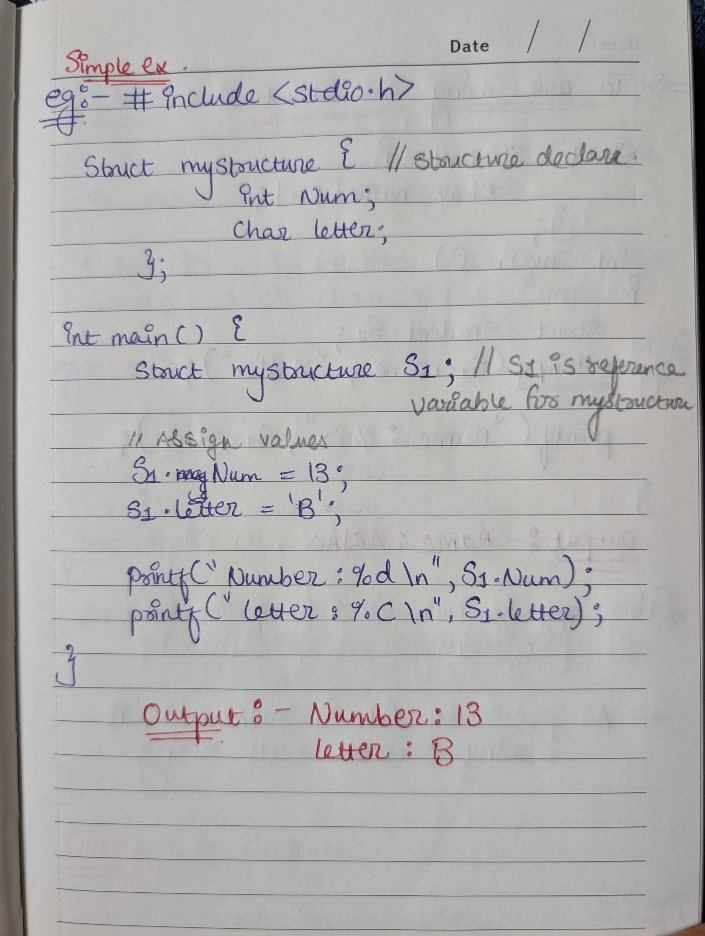 Date / /
Simple ex.
eg:- # include <stdio.h>
Struct mystructure { // structure declare.
int Num;
Char letter;
};
int main() {
Struct mystructure S1; // S1 is reference
variable for mystructure
// Assign values
S1.Num = 13;
S1.letter = 'B';
printf("Number : %d \n", S1.Num);
printf("letter : %c \n", S1.letter);
}
Output :- Number: 13
letter : B